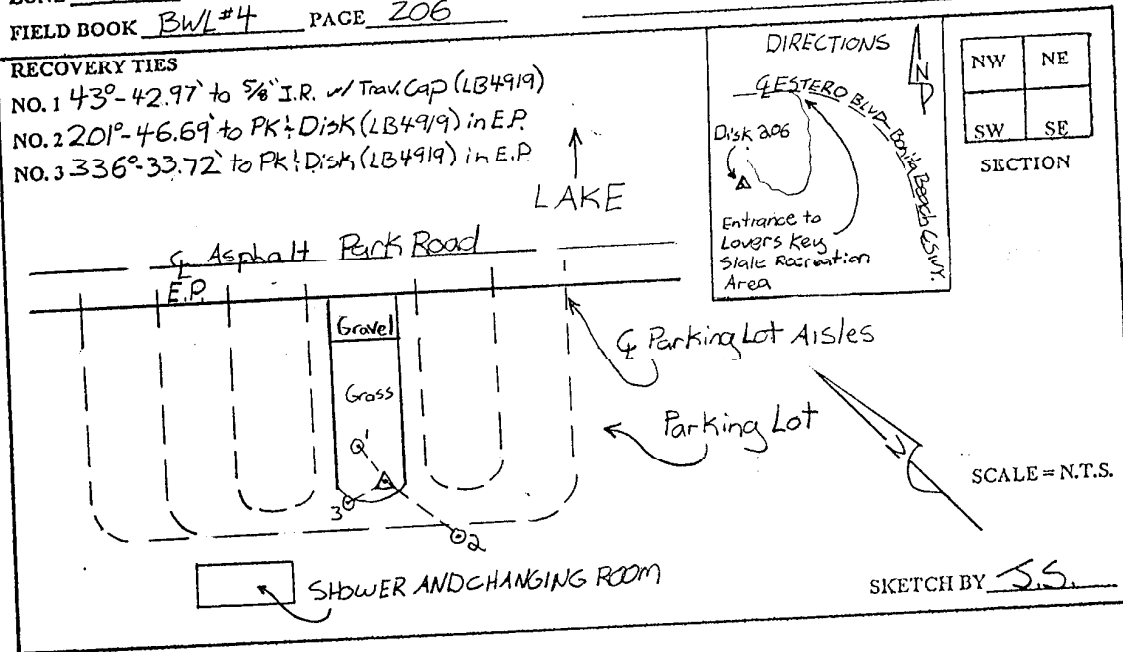 FIELD BOOK BWL#4 PAGE 206
RECOVERY TIES
NO. 1 43°-42.97' to 5/8" I.R. w/ Trav. Cap (LB4919)
NO. 2 201°-46.69' to PK & Disk (LB4919) in E.P.
NO. 3 336°-33.72' to PK & Disk (LB4919) in E.P.
LAKE
DIRECTIONS
N
℄ ESTERO BLVD - Bonita Beach CSWY.
Disk 206
Entrance to
Lovers Key
State Recreation
Area
NW NE
SW SE
SECTION
℄ Asphalt Park Road
E.P.
Gravel
Grass
1
3
2
℄ Parking Lot Aisles
Parking Lot
N
SCALE = N.T.S.
SHOWER AND CHANGING ROOM
SKETCH BY J.S.